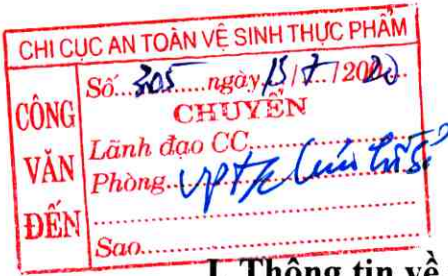 CHI CỤC AN TOÀN VỆ SINH THỰC PHẨM
CÔNG VĂN ĐẾN
Số...305......ngày 15/7/2020...
CHUYỂN
Lãnh đạo CC
Phòng
Sao
I. Thông tin về